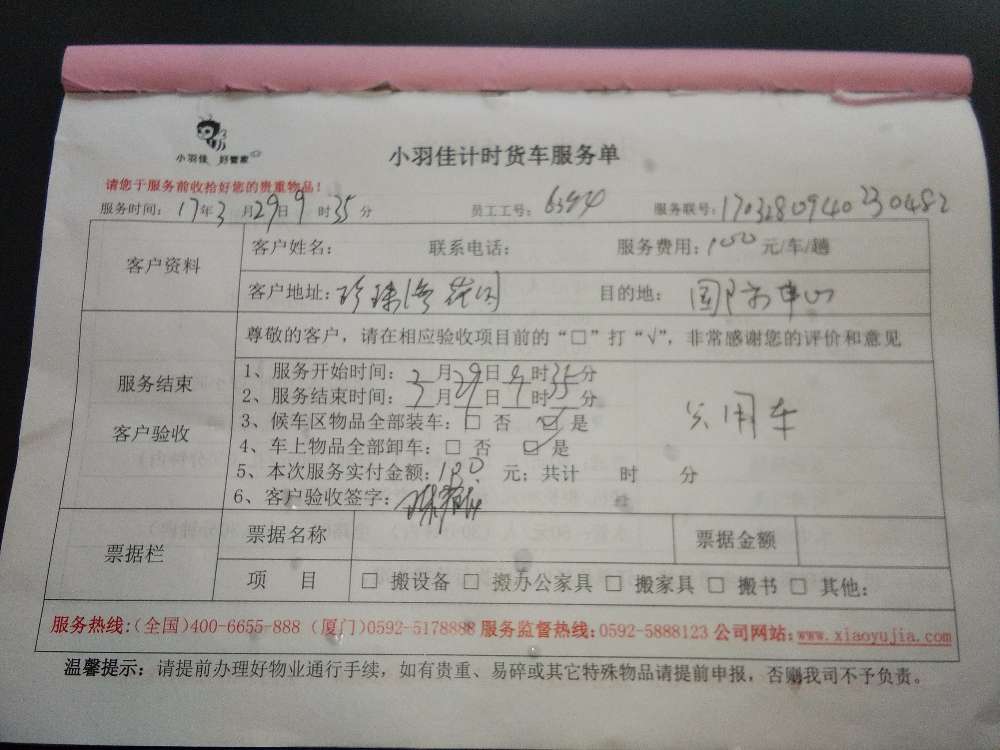 小羽佳 好管家
小羽佳计时货车服务单
请您于服务前收拾好您的贵重物品！
服务时间：17年3月29日9时35分 员工工号： 服务联号：1703280940230482
客户资料
客户姓名： 联系电话： 服务费用：100元/车/趟
客户地址：珍珠湾花园 目的地：
服务结束
客户验收
尊敬的客户，请在相应验收项目前的“□”打“√”，非常感谢您的评价和意见
1、服务开始时间：3月29日9时35分
2、服务结束时间：3月29日9时35分
3、候车区物品全部装车：□ 否 ☑ 是
4、车上物品全部卸车：□ 否 ☑ 是
公用车
5、本次服务实付金额：100元；共计 时 分
6、客户验收签字：
票据栏
票据名称 票据金额
项 目 □ 搬设备 □ 搬办公家具 □ 搬家具 □ 搬书 □ 其他：
服务热线：(全国)400-6655-888 (厦门)0592-5178888 服务监督热线：0592-5888123 公司网站：www.xiaoyujia.com
温馨提示：请提前办理好物业通行手续，如有贵重、易碎或其它特殊物品请提前申报，否则我司不予负责。